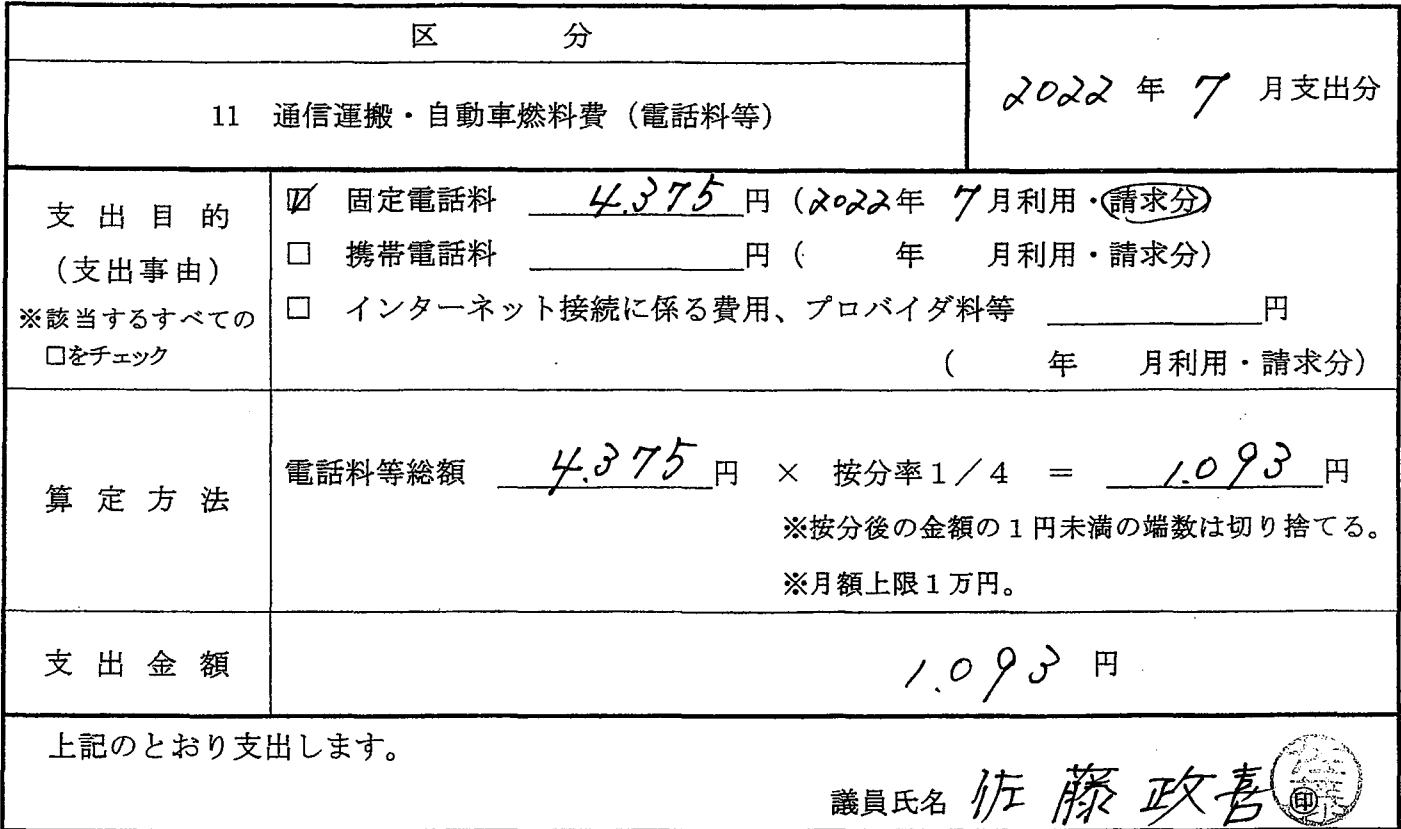 区 分
2022 年 7 月支出分
11 通信運搬・自動車燃料費（電話料等）
支出目的
（支出事由）
※該当するすべての
□をチェック
☑ 固定電話料 4.375 円（2022年 7月利用・請求分）
□ 携帯電話料 円（ 年 月利用・請求分）
□ インターネット接続に係る費用、プロバイダ料等 円
（ 年 月利用・請求分）
算定方法
電話料等総額 4.375 円 × 按分率１／４ ＝ 1.093 円
※按分後の金額の１円未満の端数は切り捨てる。
※月額上限１万円。
支出金額
1.093 円
上記のとおり支出します。
議員氏名 佐藤政喜 ㊞
佐藤